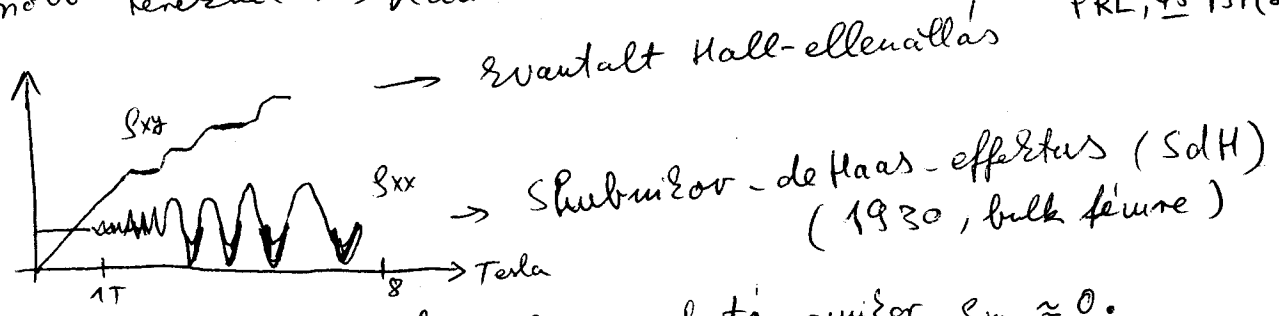 PRL, 45
→ Kvantált Hall-ellenállás
ρxy
ρxx
→ Shubnikov-de Haas-effektus (SdH)
(1930, bulk fémre)
1T
8
Tesla
amikor ρxx ≈ 0.